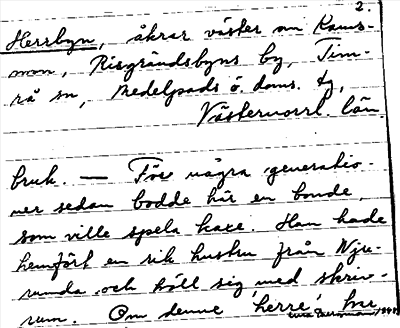 2.
Herrbyn, åkrar väster om Rams-
mon, Risgrändsbyns by, Tim-
rå sn, Medelpads ö. doms. tg,
Västernorrl. län.
bruk. — För några generatio-
ner sedan bodde här en bonde,
som ville spela karl. Han hade
hemfört en rik hustru från Nju-
runda och höll sig med skriv-
rum. Om denne 'herre' har
1941